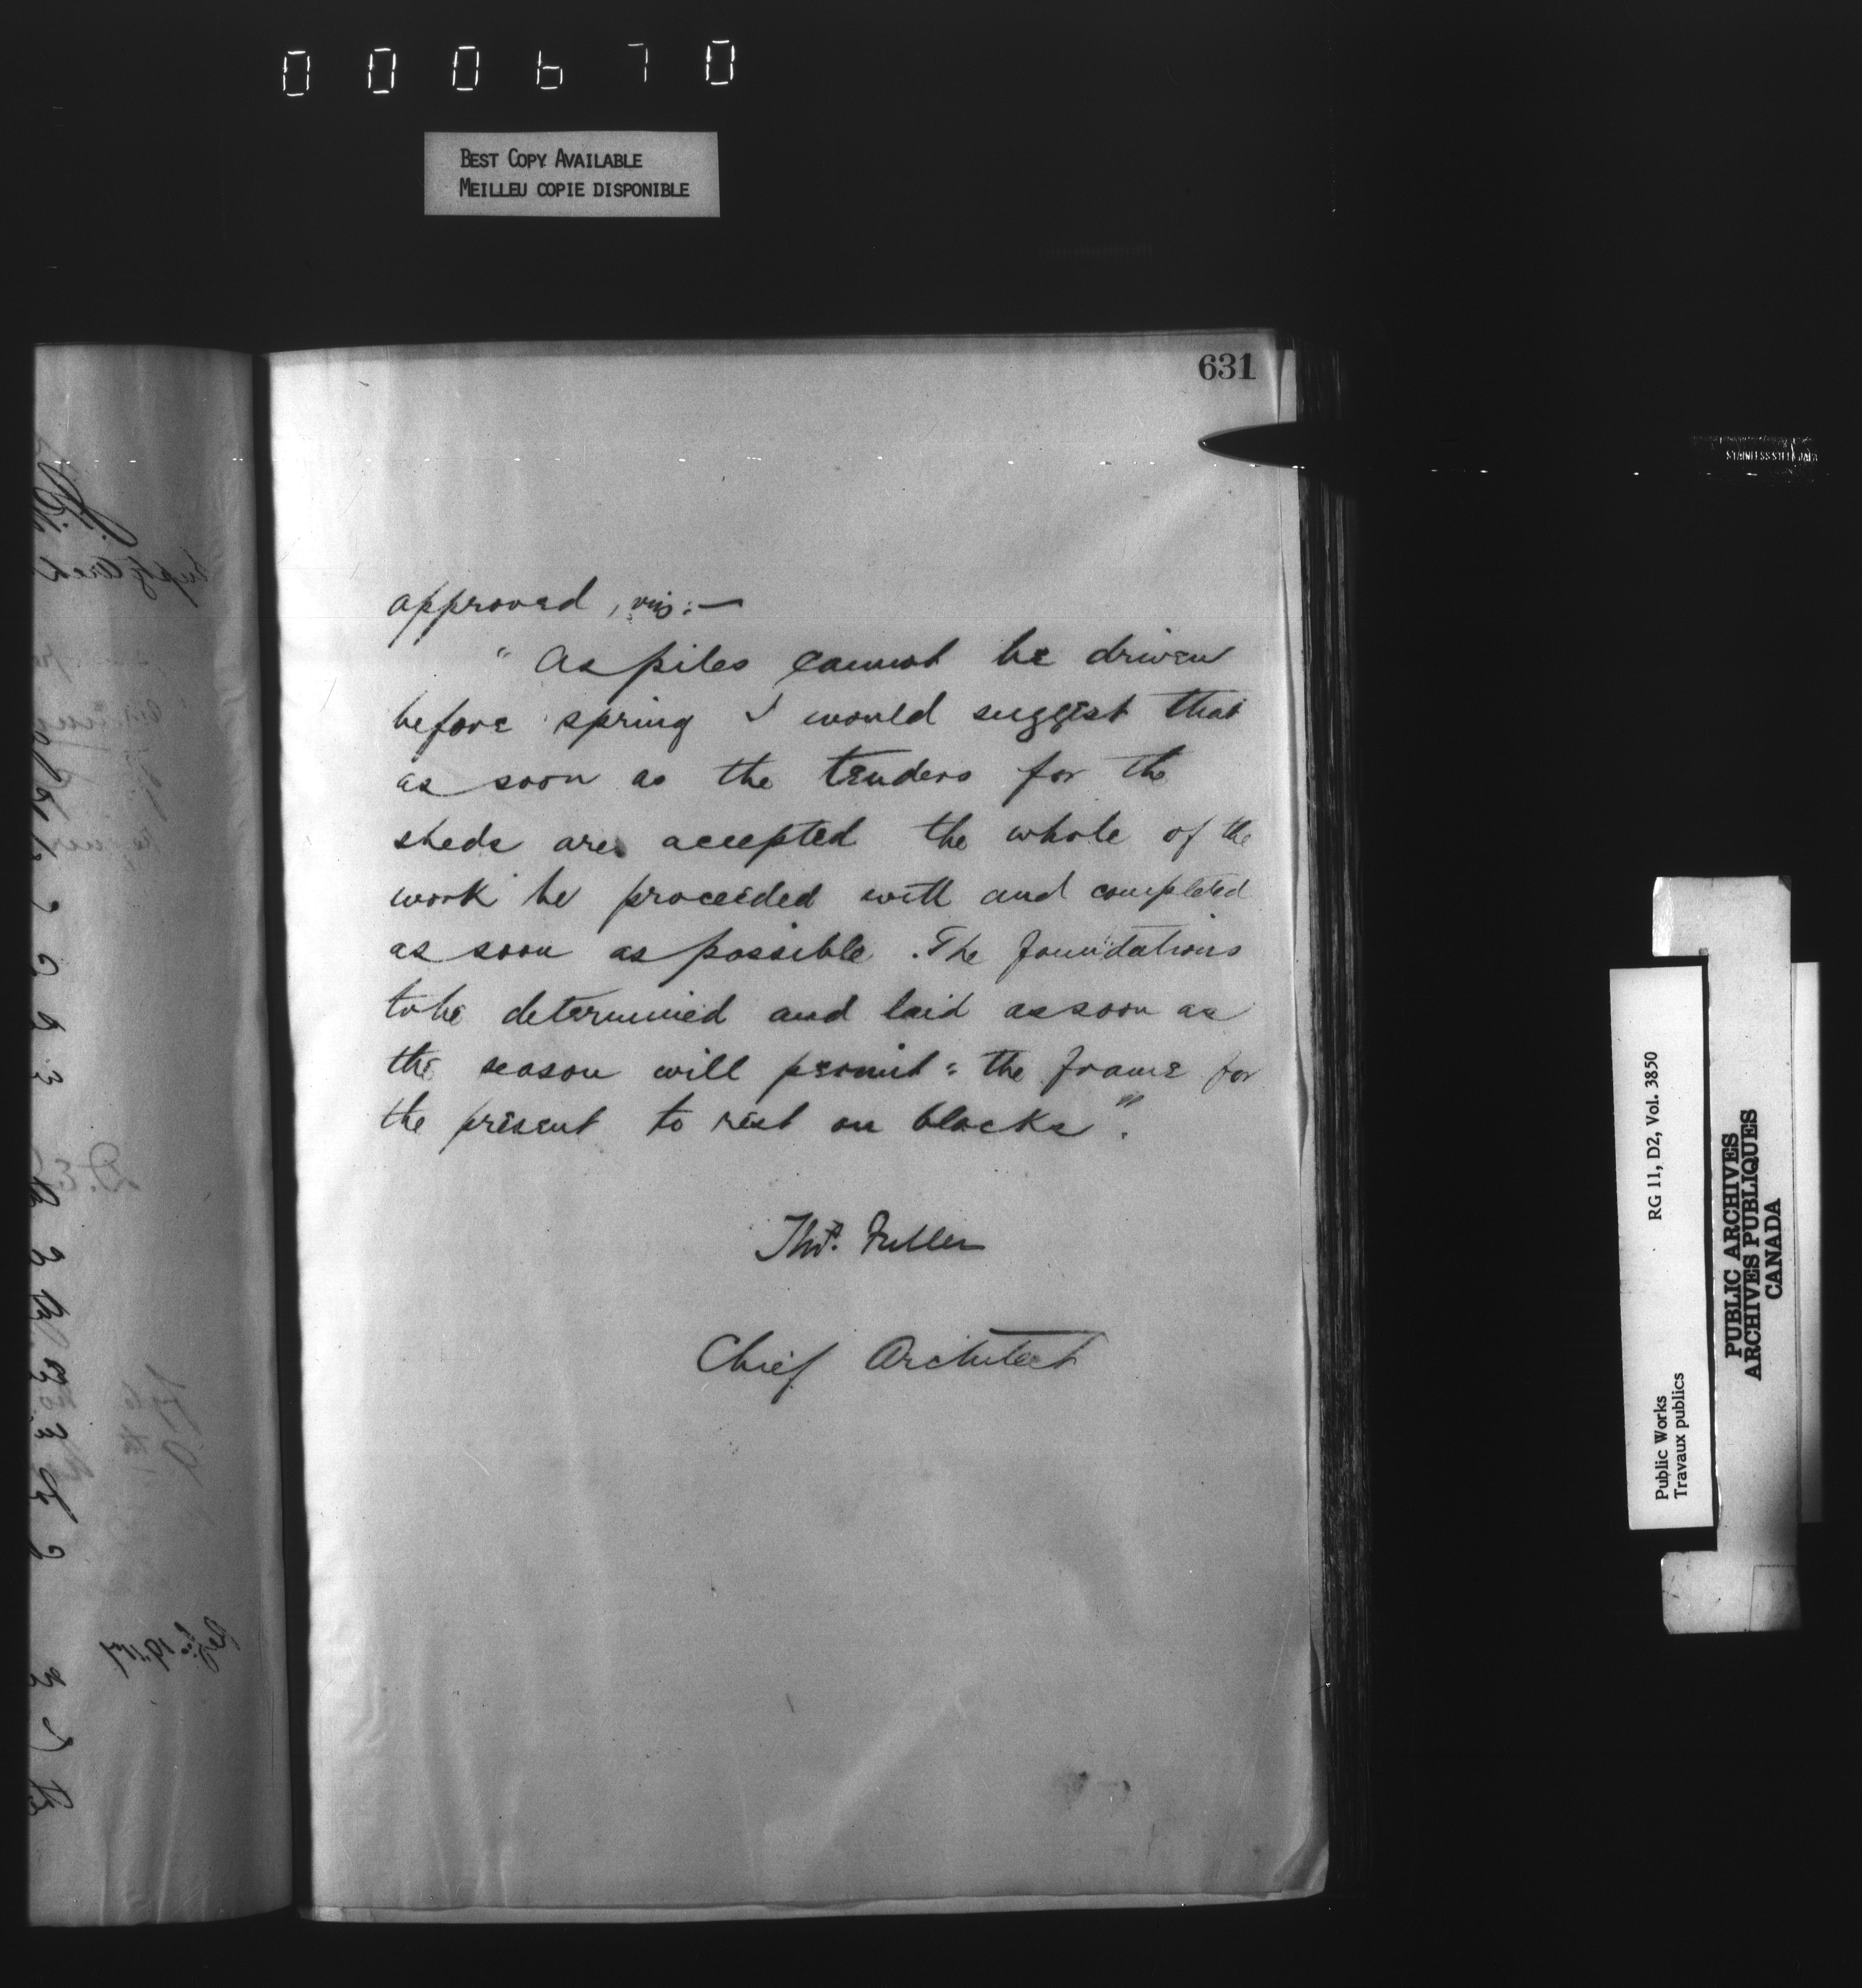 000670
BEST COPY AVAILABLE
MEILLEU COPIE DISPONIBLE
631
approved, viz:—
" As piles cannot be driven
before spring I would suggest that
as soon as the tenders for the
sheds are accepted the whole of the
work be proceeded with and completed
as soon as possible. The foundations
to be determined and laid as soon as
the season will permit: the frame for
the present to rest on blocks".
Thos. Fuller
Chief Architect
STAINLESS STEEL
RG 11, D2, Vol. 3850
Public Works
Travaux publics
PUBLIC ARCHIVES
ARCHIVES PUBLIQUES
CANADA